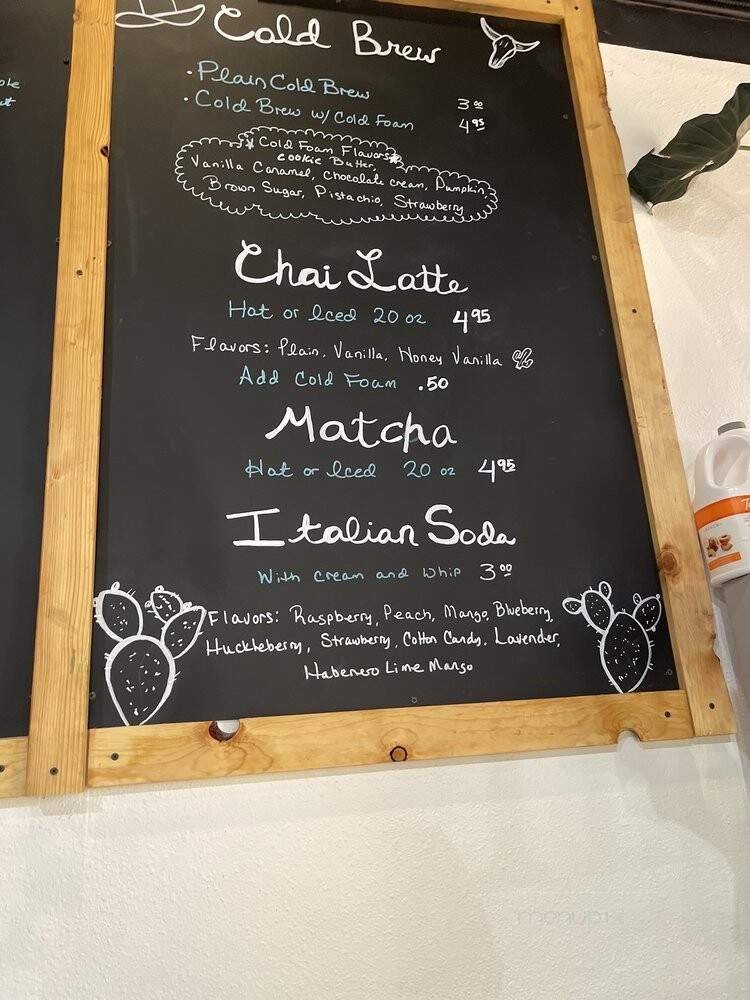 Cold Brew
• Plain Cold Brew 3.00
• Cold Brew w/ Cold Foam 4.95
Cold Foam Flavors
Cookie Butter,
Vanilla Caramel, Chocolate cream, Pumpkin,
Brown Sugar, Pistachio, Strawberry
Chai Latte
Hot or Iced 20 oz 4.95
Flavors: Plain, Vanilla, Honey Vanilla
Add Cold Foam .50
Matcha
Hot or Iced 20 oz 4.95
Italian Soda
With cream and whip 3.00
Flavors: Raspberry, Peach, Mango, Blueberry,
Huckleberry, Strawberry, Cotton Candy, Lavender,
Habenero Lime Mango